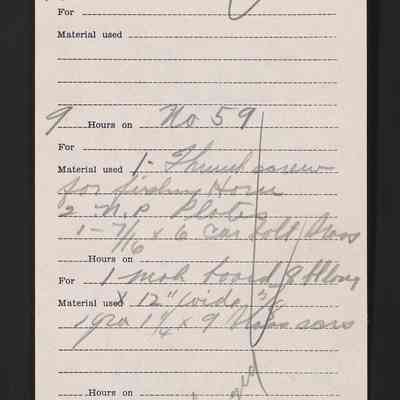 For
Material used
9 Hours on No 59
For
Material used 1- Thumb screw
for finding Horn
2 N.P. Plates
1-7/16 x 6 car bolt Brass
Hours on
For 1 mah board 8 ft long
Material used x 12" wide
1 gro 1 1/4 x 9
Hours on